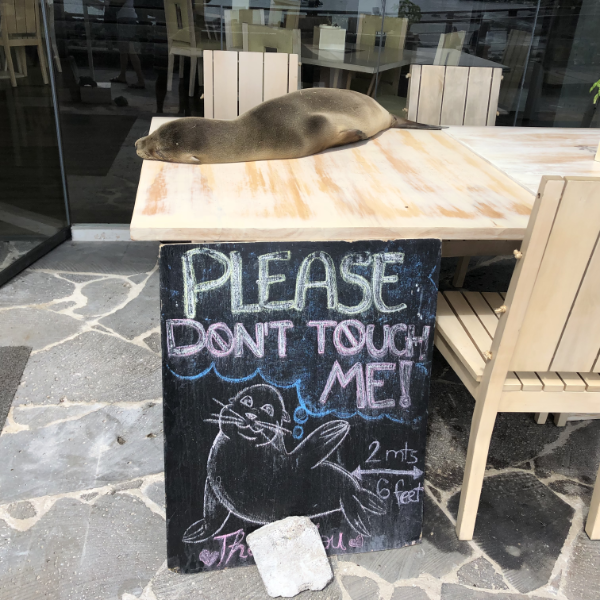 PLEASE
DON'T TOUCH
ME!
2 mts
6 feet